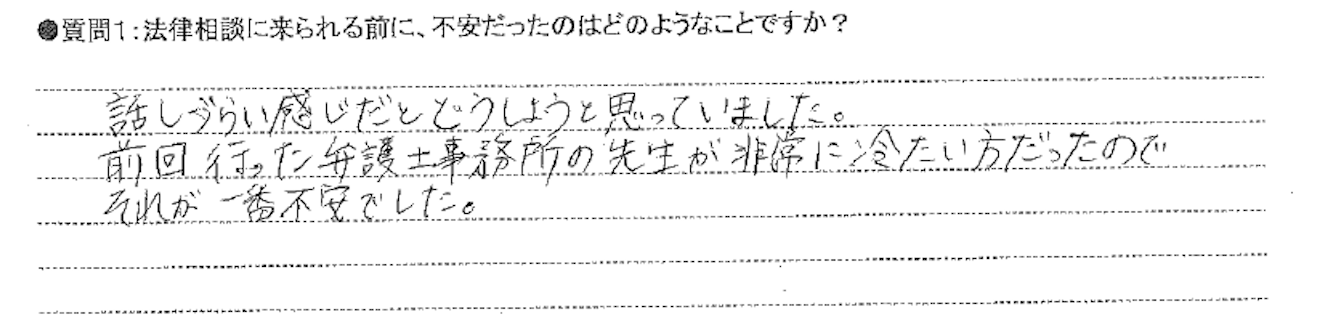 ●質問1:法律相談に来られる前に、不安だったのはどのようなことですか?
話しづらい感じだとどうしようと思っていました。
前回行った弁護士事務所の先生が非常に冷たい方だったので
それが一番不安でした。